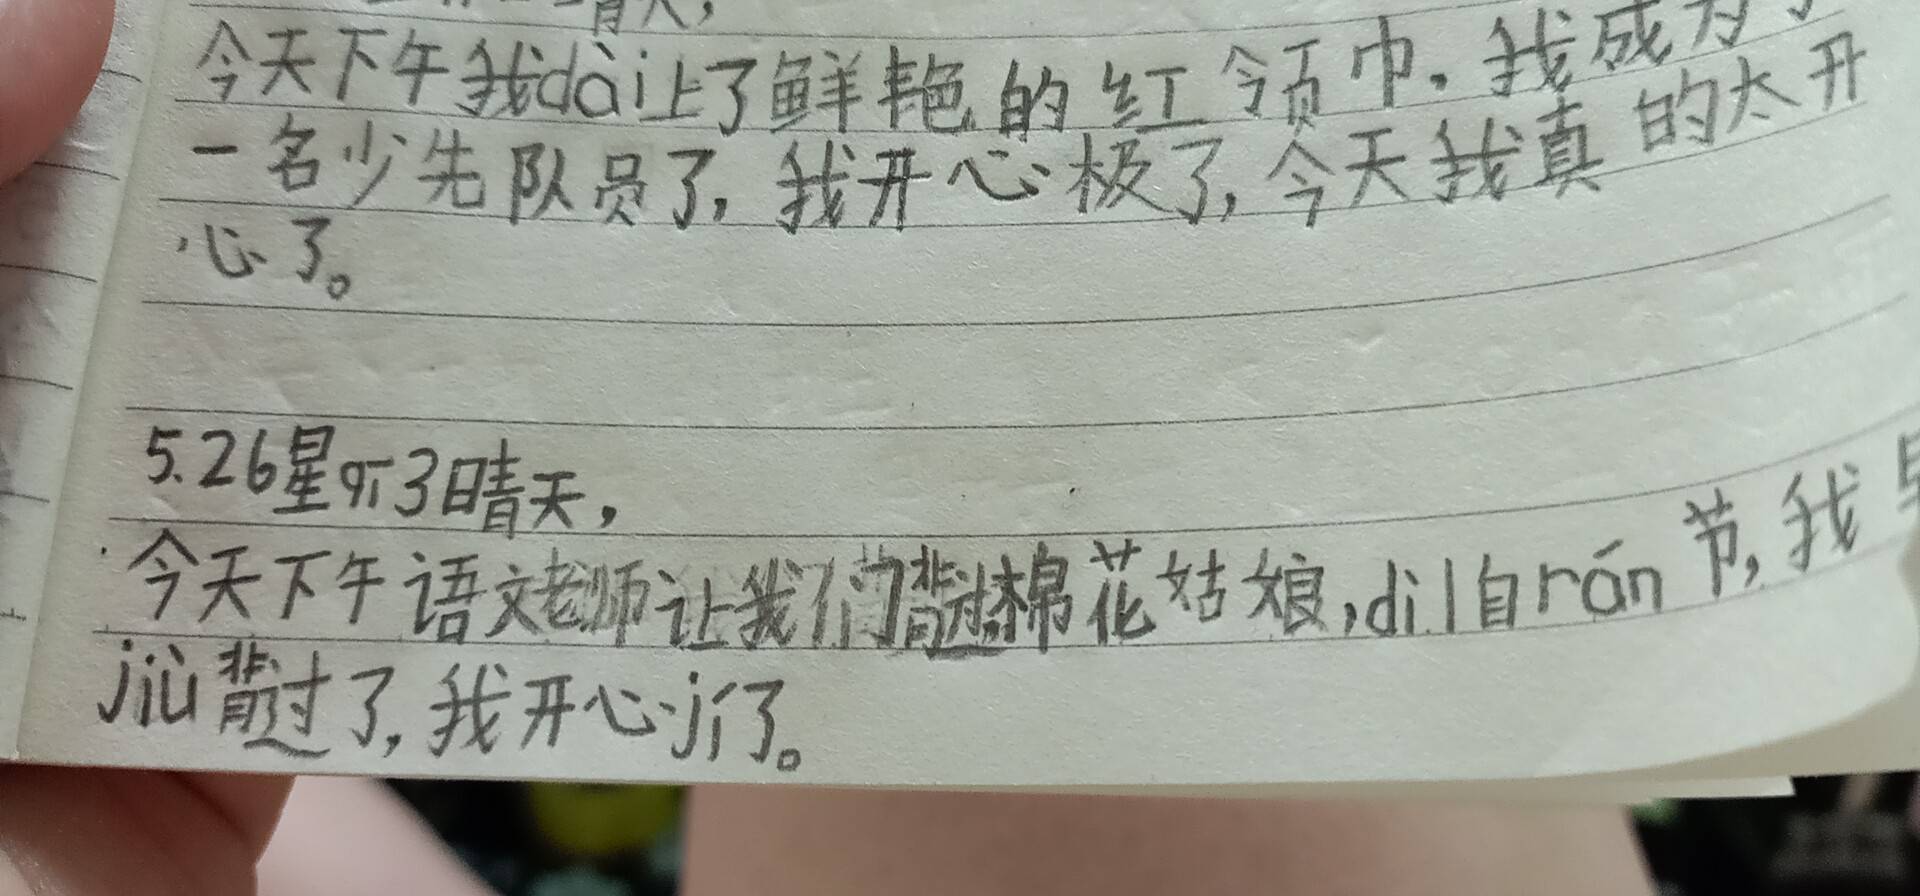 晴天，
今天下午我dài上了鲜艳的红领巾，我成为了
一名少先队员了，我开心极了，今天我真的太开
心了。
5.26星qī3晴天，
今天下午语文老师让我们背过棉花姑娘，di1自rán节，我早
jiù背过了，我开心jí了。